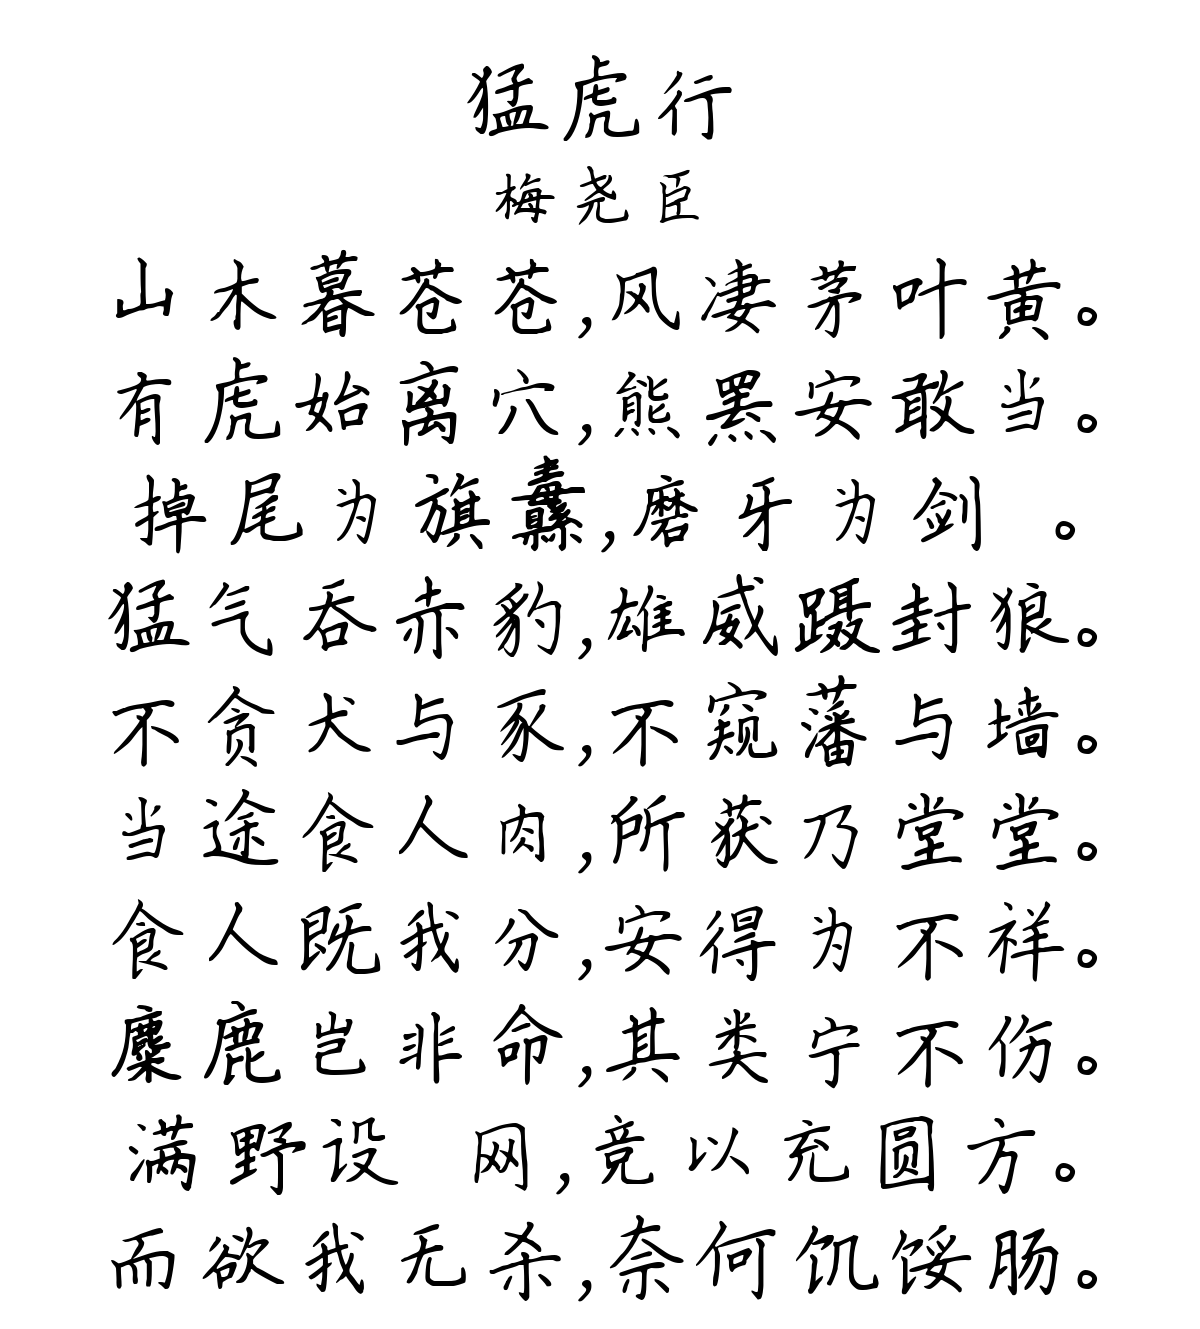 猛虎行
梅尧臣
山木暮苍苍,风凄茅叶黄。
有虎始离穴,熊罴安敢当。
掉尾为旗纛,磨牙为剑 。
猛气吞赤豹,雄威蹑封狼。
不贪犬与豕,不窥藩与墙。
当途食人肉,所获乃堂堂。
食人既我分,安得为不祥。
麋鹿岂非命,其类宁不伤。
满野设 网,竞以充圆方。
而欲我无杀,奈何饥馁肠。